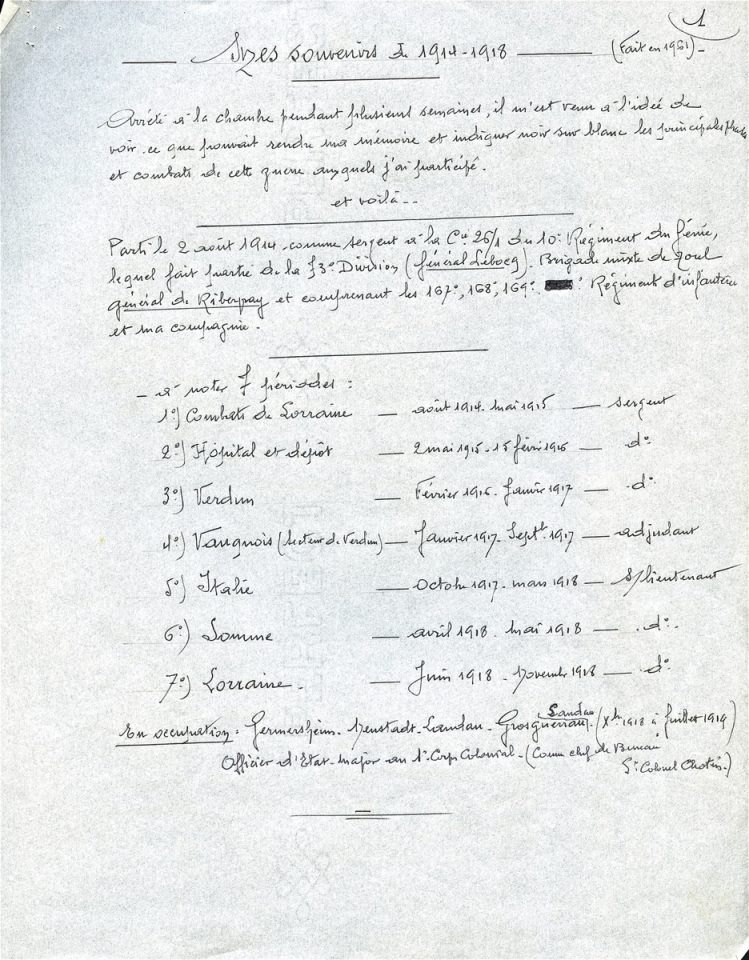 1
Mes souvenirs de 1914-1918 (Fait en 1961)-
Arrêté à la chambre pendant plusieurs semaines, il m'est venu à l'idée de
voir ce que pouvait rendre ma mémoire et indiquer noir sur blanc les principales phases
et combats de cette guerre auxquels j'ai participé.
et voilà--
Parti le 2 août 1914 comme sergent à la Cie 26/1 du 10e Régiment du Génie,
lequel fait partie de la 73e Division (général Lebocq). Brigade mixte de Toul
général de Riberpray et comprenant les 167e, 168e, 169e Régiment d'infanterie
et ma compagnie.
- à noter 7 périodes :
1°) Combats de Lorraine — août 1914. mai 1915 — sergent
2°) Hôpital et dépôt — 2 mai 1915. 15 févri 1916 — d°
3°) Verdun — Février 1916. Janvier 1917 — d°
4°) Vauquois (secteur de Verdun) — Janvier 1917. Septbre 1917 — adjudant
5°) Italie — Octobre 1917. mars 1918 — s/lieutenant
6°) Somme — avril 1918. mai 1918 — d°.
7°) Lorraine. — Juin 1918. Novembre 1918 — d°
En occupation : Germersheim. Neustadt. Landau. Landau (Xbre 1918 à Juillet 1919)
Officier d'Etat-major au 1er Corps Colonial. (Comme chef de Bureau
Lt Colonel)